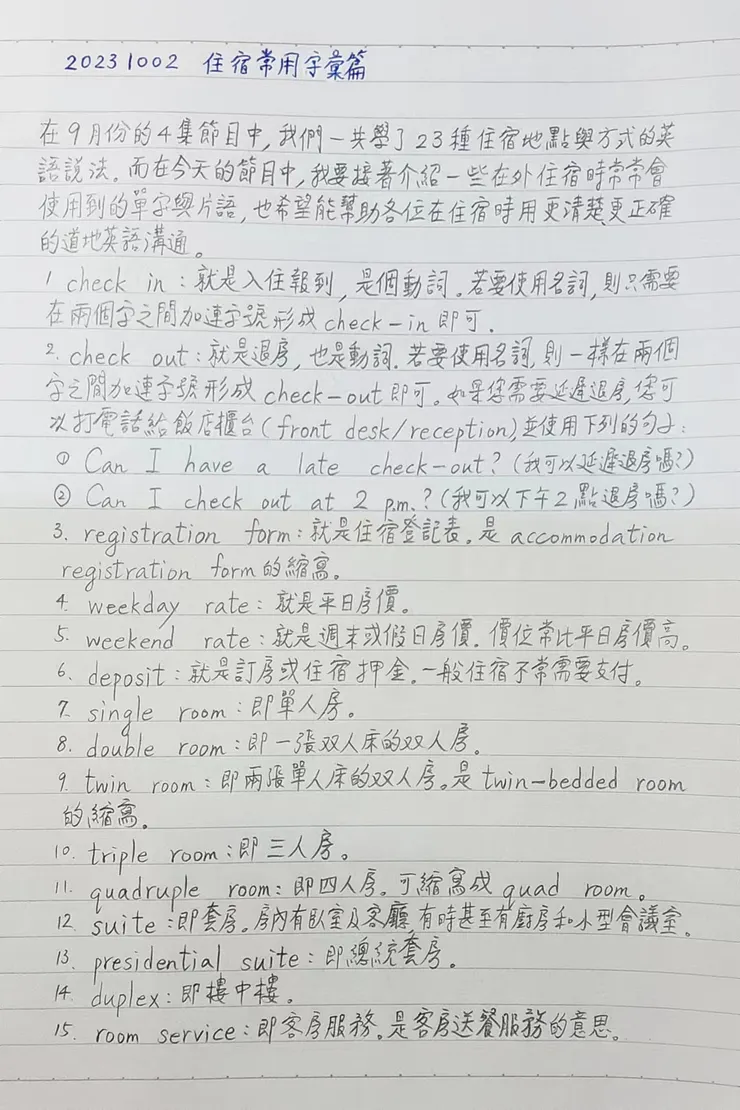 20231002 住宿常用字彙篇
在9月份的4集節目中,我們一共學了23種住宿地點與方式的英
語說法。而在今天的節目中,我要接著介紹一些在外住宿時常常會
使用到的單字與片語,也希望能幫助各位在住宿時用更清楚、更正確
的道地英語溝通。
1. check in:就是入住報到,是個動詞。若要使用名詞,則只需要
在兩個字之間加連字號形成check-in即可。
2. check out:就是退房,也是動詞。若要使用名詞,則一樣在兩個
字之間加連字號形成check-out即可。如果您需要延遲退房,您可
以打電話給飯店櫃台(front desk/reception),並使用下列的句子:
① Can I have a late check-out?(我可以延遲退房嗎?)
② Can I check out at 2 p.m.?(我可以下午2點退房嗎?)
3. registration form:就是住宿登記表。是accommodation
registration form的縮寫。
4. weekday rate:就是平日房價。
5. weekend rate:就是週末或假日房價。價位常比平日房價高。
6. deposit:就是訂房或住宿押金。一般住宿不常需要支付。
7. single room:即單人房。
8. double room:即一張双人床的双人房。
9. twin room:即兩張單人床的双人房。是twin-bedded room
的縮寫。
10. triple room:即三人房。
11. quadruple room:即四人房。可縮寫成quad room。
12. suite:即套房。房內有臥室及客廳,有時甚至有廚房和小型會議室。
13. presidential suite:即總統套房。
14. duplex:即樓中樓。
15. room service:即客房服務。是客房送餐服務的意思。